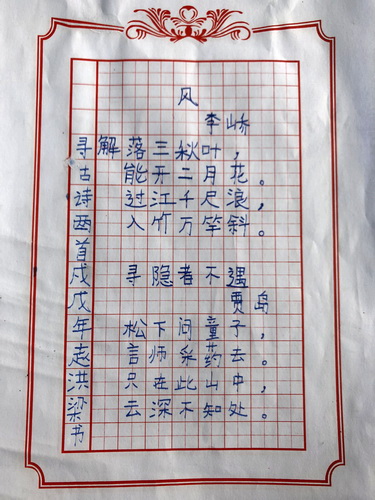 风
李峤
解落三秋叶，
能开二月花。
过江千尺浪，
入竹万竿斜。
寻隐者不遇
贾岛
松下问童子，
言师采药去。
只在此山中，
云深不知处。
寻古诗两首戌戊年赵洪梁书